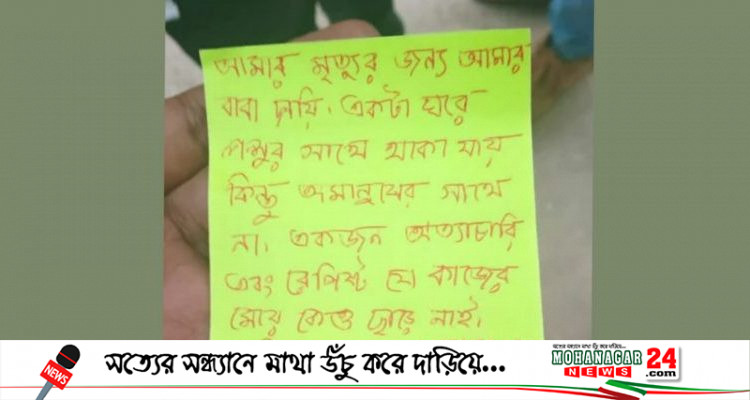 আমার মৃত্যুর জন্য আমার
বাবা দায়ি। একটা ঘরে
পশুর সাথে থাকা যায়
কিন্তু অমানুষের সাথে
না। একজন অত্যাচারি
এবং রেপিষ্ট যে কাজের
মেয়ে কেও ছারে নাই।
সত্যের সন্ধ্যানে মাথা উঁচু করে দাড়িয়ে...
NEWS
সত্যের সন্ধ্যানে মাথা উঁচু করে দাড়িয়ে...
MOHANAGAR 24
NEWS .com